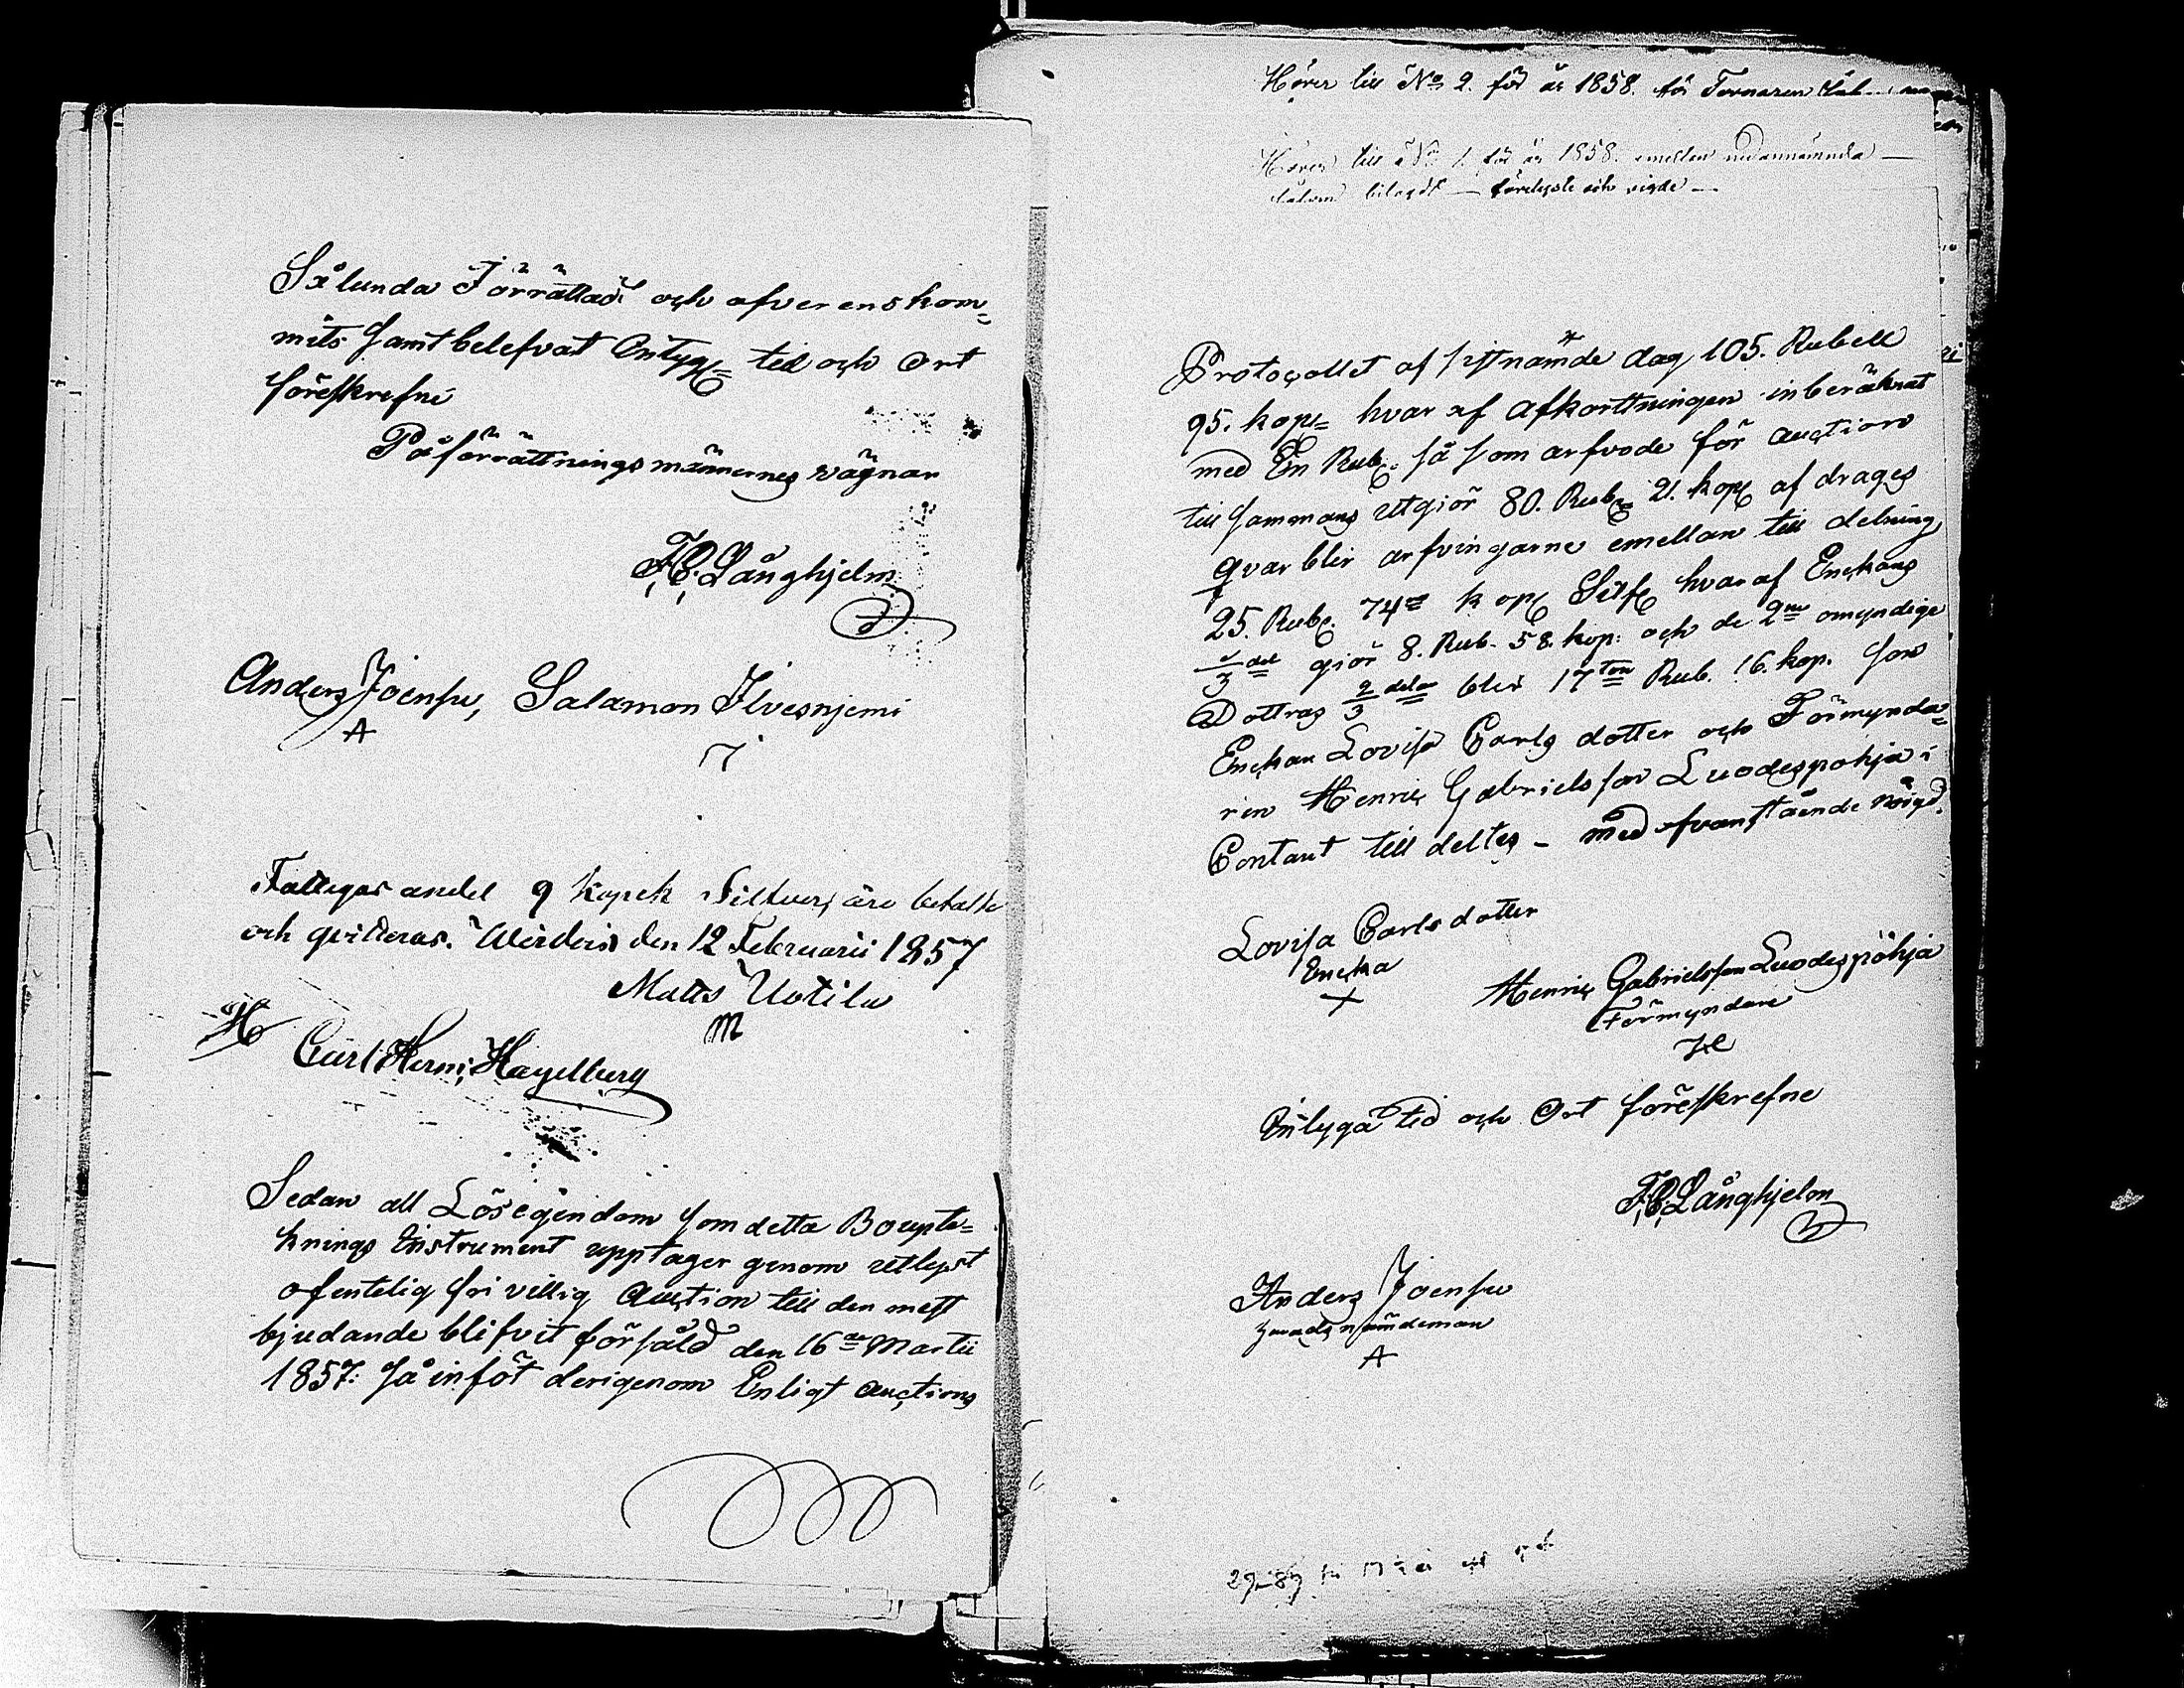 Sålunda Förrättadt och afverenskom=
mits samt belefvat Intyg= tid och Ort
föreskrefne
På förrättningsmännernes vägnar
F.C. Långhjelm
Anders Joensu, Salamon Ilvesnjemi
A
Fattigas andel 9 Kopek Silfver, äro betalte
och qvitteras. Wirdois den 12 Februarii 1857
Matts Uotila
M
Carl Henri: Hagelberg
Sedan all Lösegendom som detta Boupte=
knings Instrument upptager genom utlyst
ofentelig fri villig Auction till den mest
bjudande blifvit försåld den 16de Martii
1857: så inföt derigenom Enligt Auctions
Hörer till No 2. för år 1858. för Tornaren
Hörer till No 1. för år 1858. emellan nedannämnda
Protocollet af sistnämde dag 105. Rubell
95. kop= hvar af afkorttningen inberäknat
med En Rub. så som arfvode för auction
till sammans utgiör 80. Rub. 21. kop af drages
qvar blir arfvingarne emellan till delning
25. Rub. 74 kop Silf hvaraf Enckans
1/3 del giör 8. Rub. 58. kop: och de 2ne omyndige
Dottras 2/3 delar blir 17ton Rub. 16. kop. som
Enckan Lovisa Carls dotter och Förmynda=
ren Henric Gabrielsson Luodespohja i
Contant till deltes - med ofvanstående nöigd.
Lovisa Carlsdotter
Encka
X
Henric Gabrielsson Luodespohja
Förmyndare
Intyga tid och Ort föreskrefne
F.C. Långhjelm
Anders Joensu
nämdeman
A